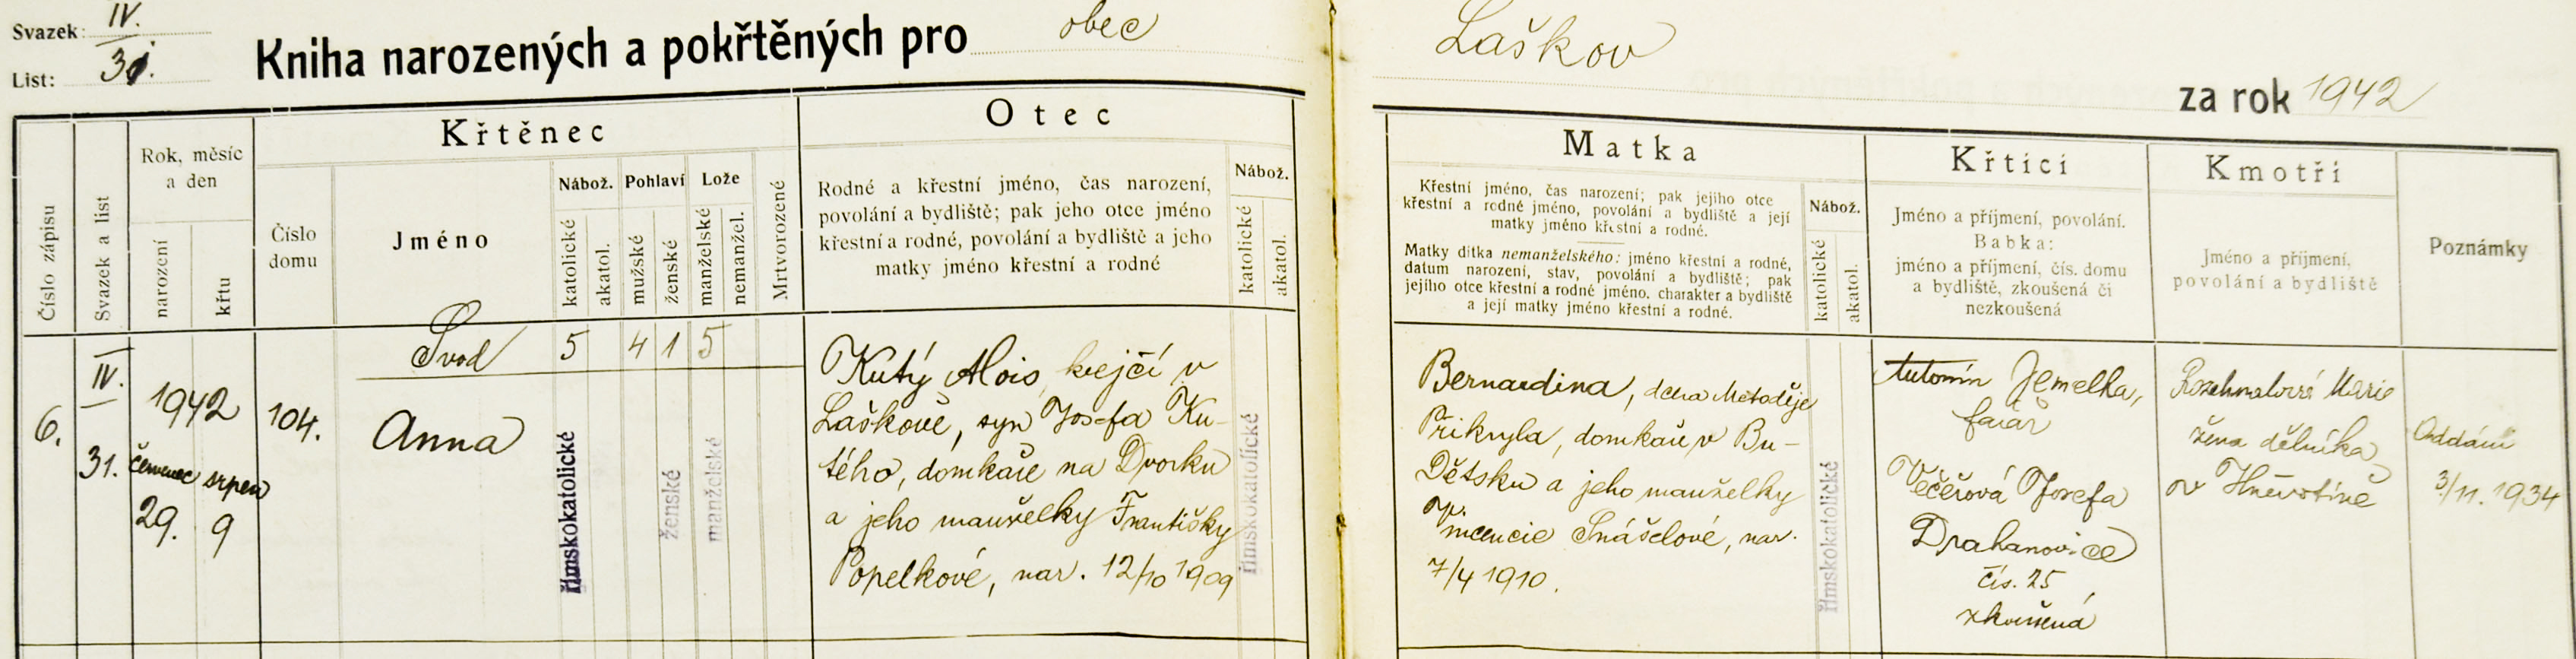 Svazek: IV.
List: 31.
Kniha narozených a pokřtěných pro obec
Laškov
za rok 1942
Číslo zápisu
Svazek a list
Rok, měsíc
a den
narození
křtu
Křtěnec
Číslo
domu
Jméno
Nábož.
katolické
akatol.
Pohlaví
mužské
ženské
Lože
manželské
nemanžel.
Mrtvorozené
Otec
Rodné a křestní jméno, čas narození,
povolání a bydliště; pak jeho otce jméno
křestní a rodné, povolání a bydliště a jeho
matky jméno křestní a rodné
Nábož.
katolické
akatol.
Matka
Křestní jméno, čas narození; pak jejiho otce
křestní a rodné jméno, povolání a bydliště a její
matky jméno křestní a rodné.
Matky dítka nemanželského: jméno křestní a rodné,
datum narození, stav, povolání a bydliště; pak
jejího otce křestní a rodné jméno. charakter a bydliště
a její matky jméno křestní a rodné.
Nábož.
katolické
akatol.
Křticí
Jméno a příjmení, povolání.
Babka:
jméno a příjmení, čís. domu
a bydliště, zkoušená či
nezkoušená
Kmotři
Jméno a příjmení,
povolání a bydliště
Poznámky
Svod 5 4 1 5
6.
IV.
31.
1942
červenec srpen
29. 9
104.
Anna
římskokatolické
ženské
manželské
Kutý Alois, krejčí v
Laškově, syn Josefa Ku-
tého, domkaře na Dvorku
a jeho manželky Františky
Popelkové, nar. 12/10 1909
římskokatolické
Bernardina, dcera Metoděje
Přikryla, domkaře v Bu-
Dětsku a jeho manželky
Vincencie Snášelové, nar.
7/4 1910.
římskokatolické
Antonín Jemelka,
farář
Večeřová Josefa
Drahanovice
čís. 25
zkoušená
Marie
žena dělníka
v Hněvotíně
Oddáni
3/11. 1934